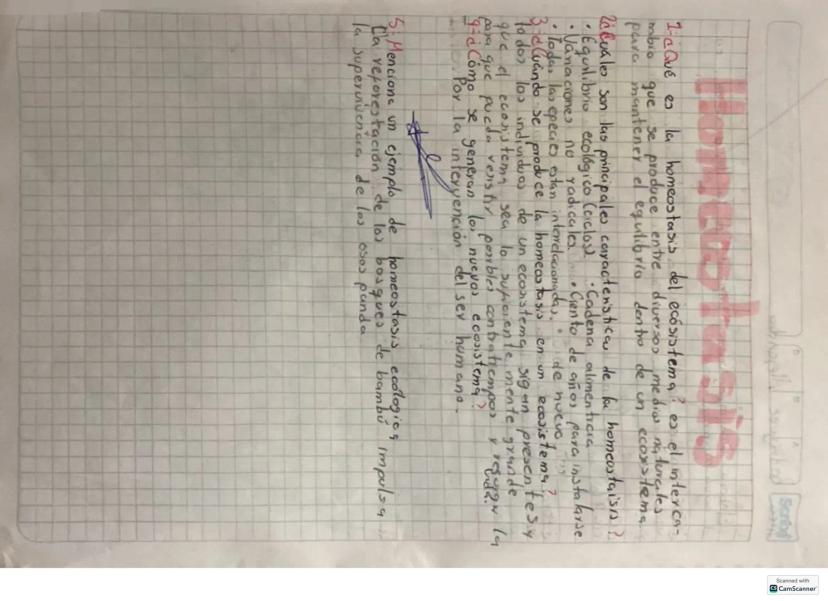 Homeostasis
1-¿Qué es la homeostasis del ecosistema? es el interca-
mbio que se produce entre diversos medios naturales
para mantener el equilibrio dentro de un ecosistema
2¿Cuáles son las principales características de la homeostaisis?
• Equilibrio ecológico (ciclos) • Cadena alimenticia
• Variaciones no radicales • Ciento de años para instalarse
• Todas las especies estan interrelacionadas. de nuevo
3-¿Cuándo se produce la homeostasis en un ecosistema?
todos los individuos de un ecosistema sigan presentes y
que el ecosistema sea lo suficiente mente grande
para que pueda resistir posibles contratiempos y resguar la
vida.
4-¿Cómo se generan los nuevos ecosistema?
Por la intervención del ser humano.
5-Menciona un ejemplo de homeostasis ecologica
La reforestación de los bosques de bambú impulsa
la supervivencia de los osos panda
Scribe
Scanned with
CamScanner